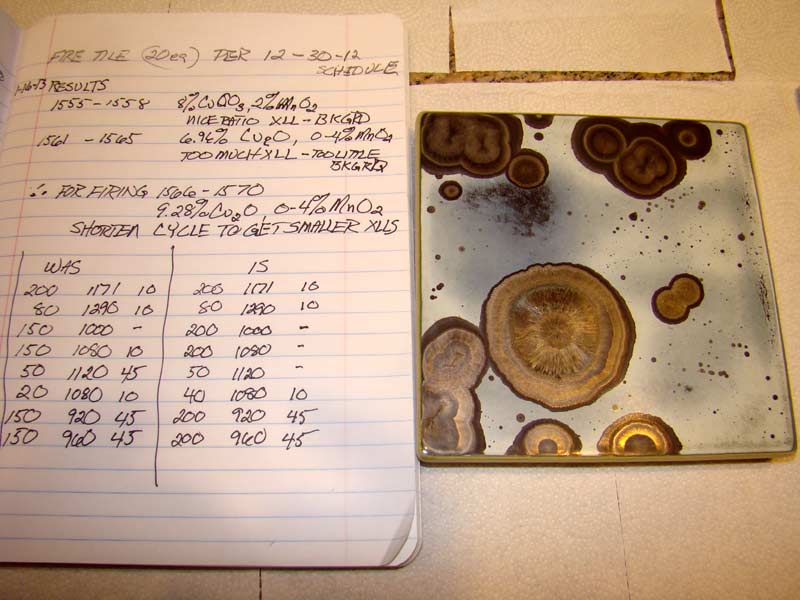 FIRE TILE (20ea) PER 12-30-12
SCHEDULE
RESULTS
1555-1558 8% CuCO3, 2% MnO2
NICE RATIO XLL - BKGRD
1561 - 1565 6.96% Cu2O, 0-4% MnO2
TOO MUCH XLL - TOO LITTLE
BKGRD
∴ FOR FIRING 1566-1570
9.28% Cu2O, 0-4% MnO2
SHORTEN CYCLE TO GET SMALLER XLLS
WAS IS
200 1171 10 200 1171 10
80 1290 10 80 1290 10
150 1000 - 200 1000 -
150 1080 10 200 1080 -
50 1120 45 50 1120 -
20 1080 10 40 1080 10
150 920 45 200 920 45
150 960 45 200 960 45